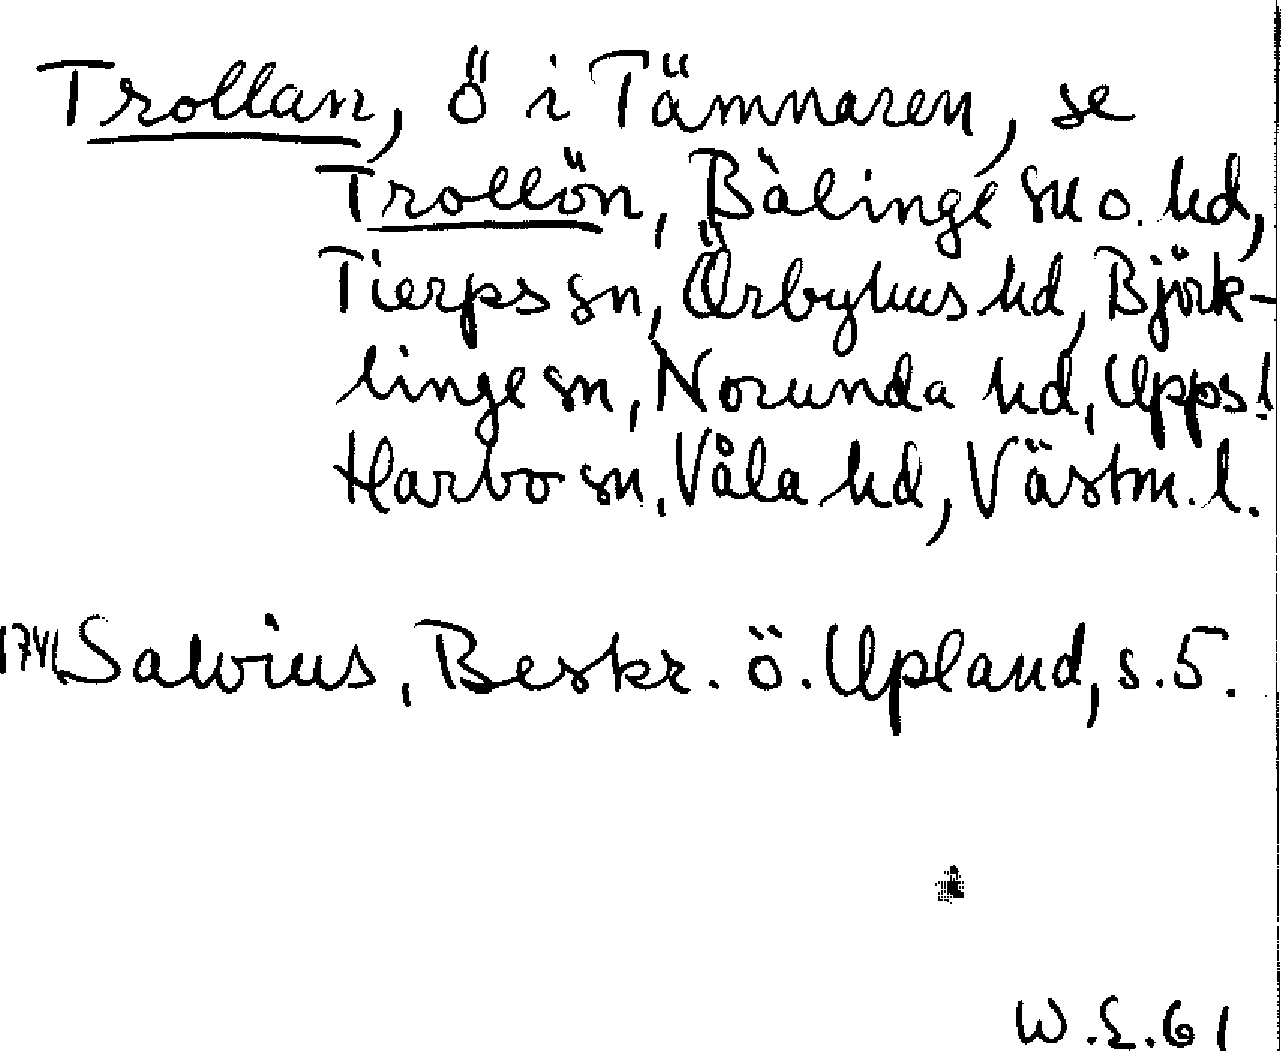 Trollan, ö i Tämnaren, se
Trollön, Bälinge sn o. hd,
Tierps sn, Örbyhus hd, Björk-
linge sn, Norunda hd, Upps. l
Harbo sn, Våla hd, Västm. l.
1741 Salvius, Beskr. ö. Upland, s. 5.
W.E. 61